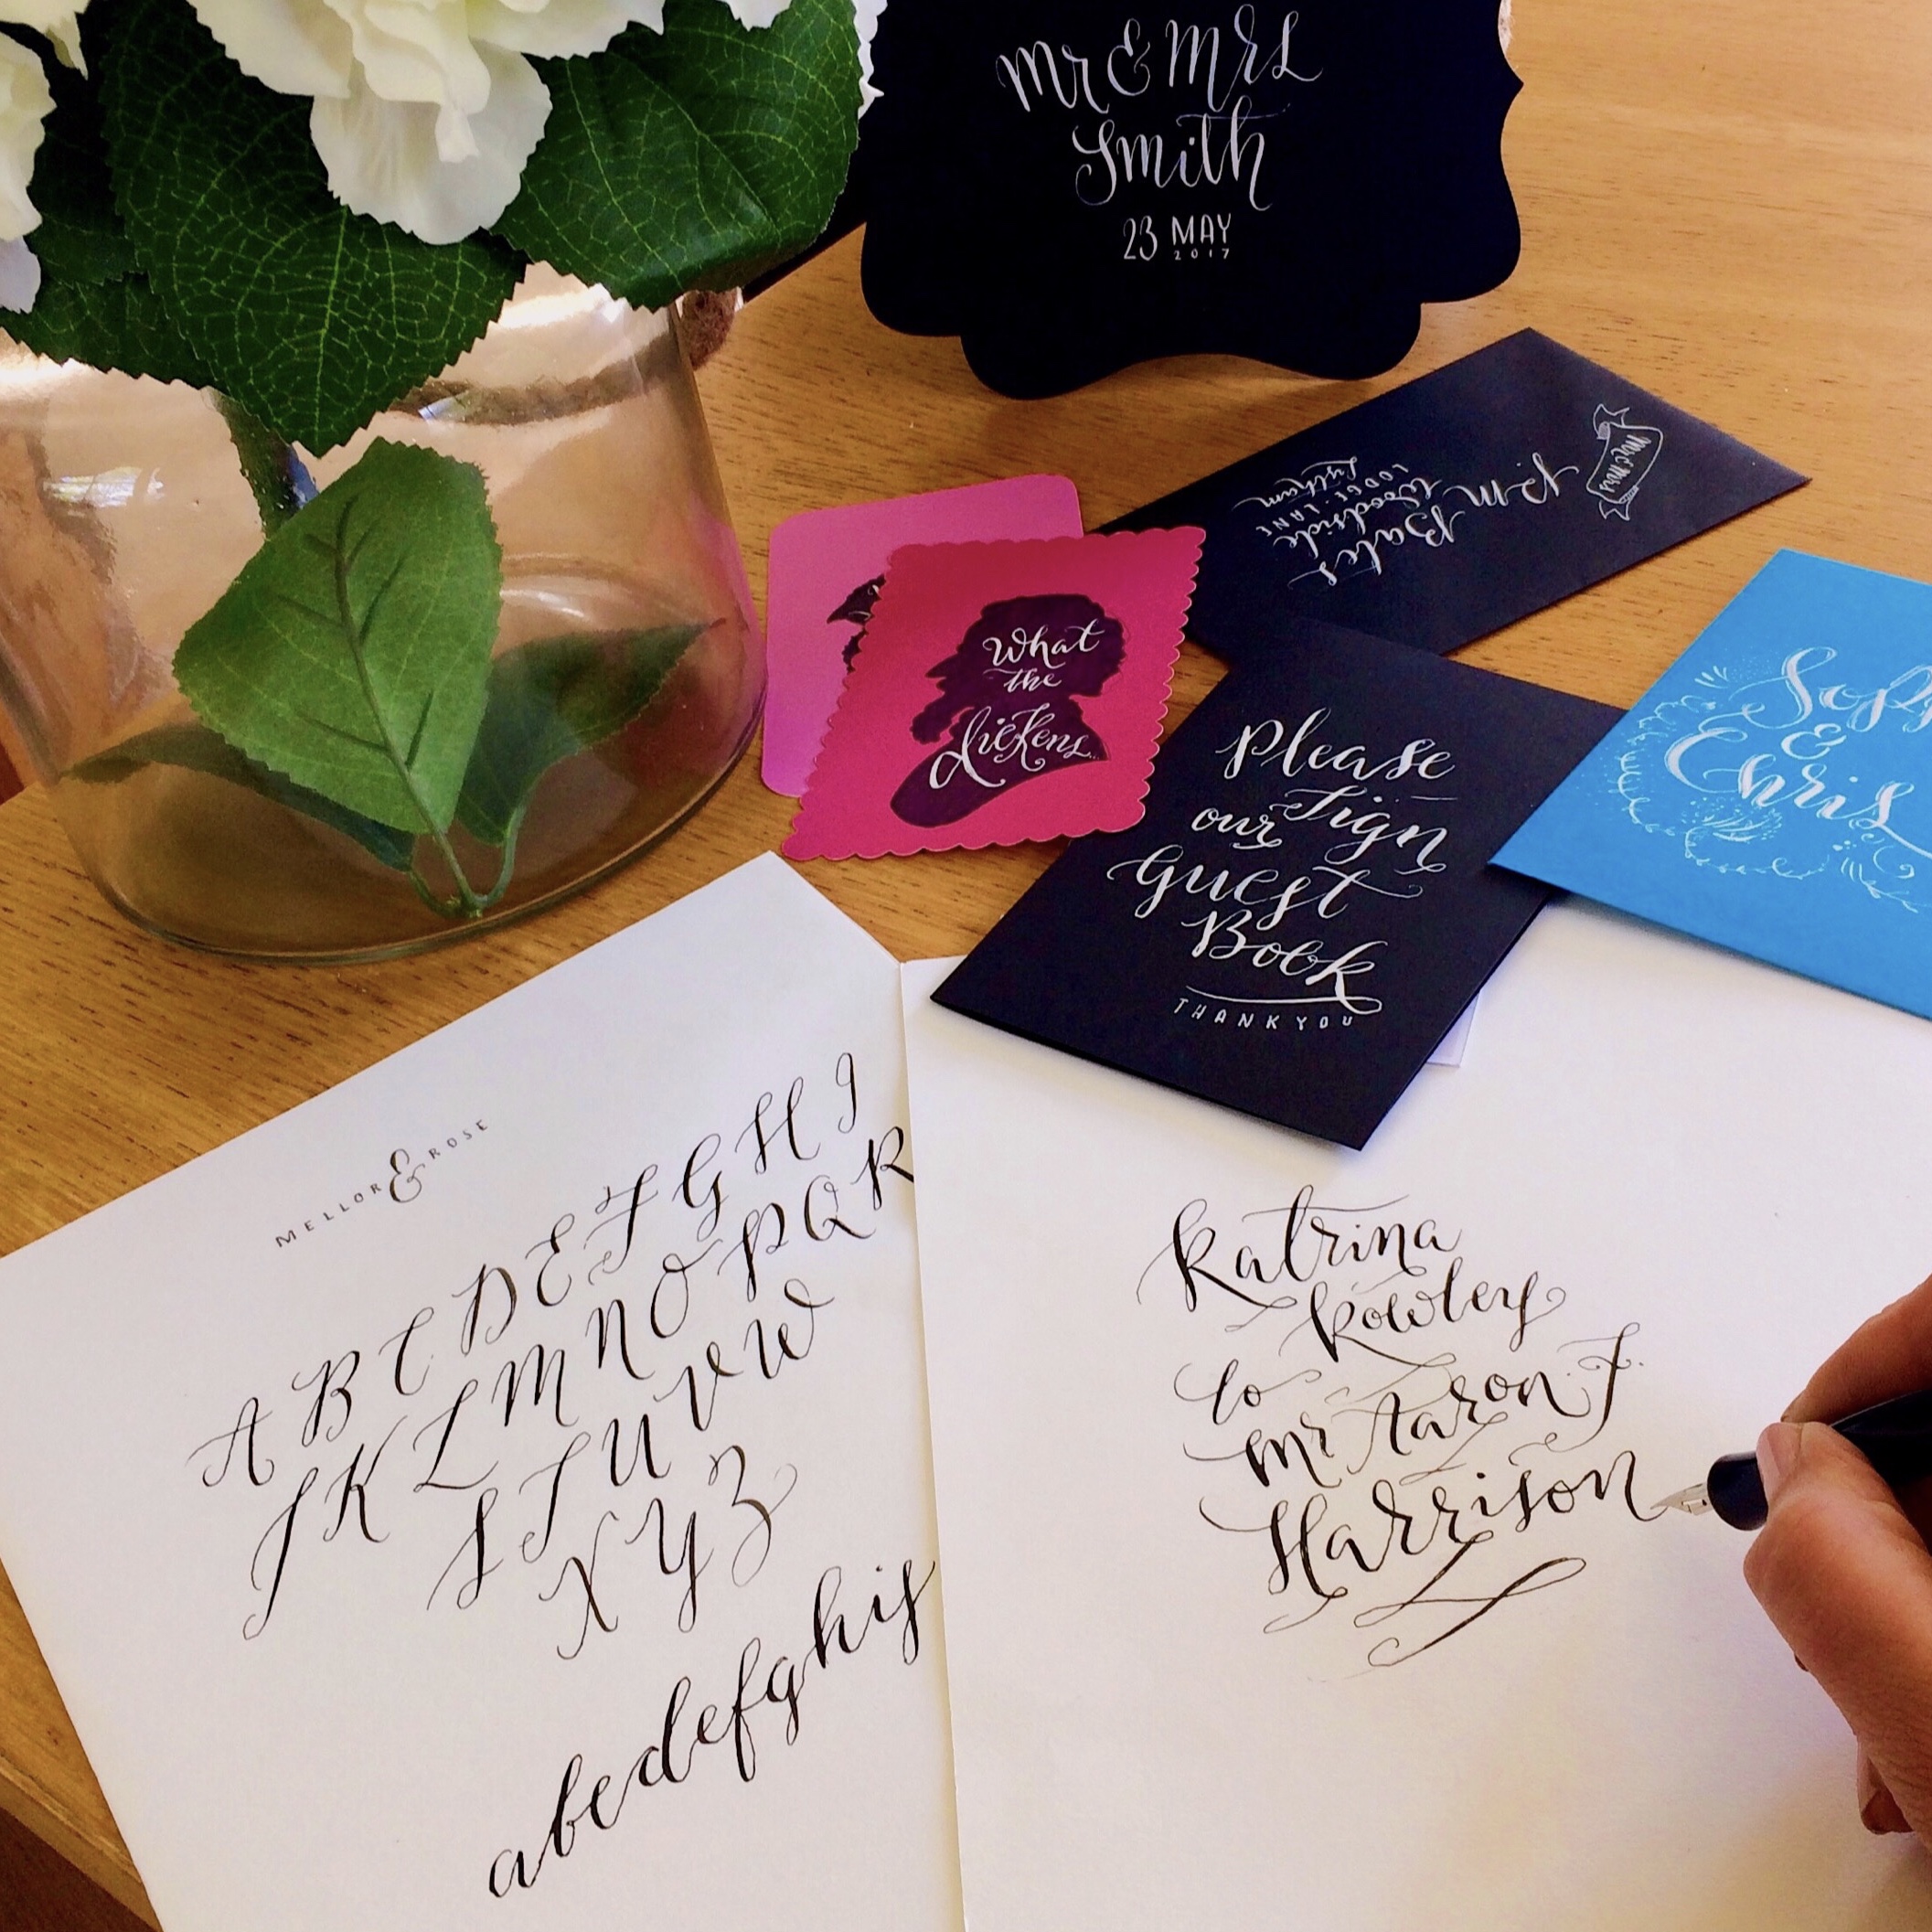 Mr & Mrs
Smith
23 MAY
2017
Mr & Mrs
P.M
Bates
Woodside
LODGE LANE
Lytham
What
the
dickens
Please
Sign
our
Guest
Book
THANKYOU
&
Chris
MELLOR & ROSE
A B C D E F G H I
J K L M N O P Q R
S T U V W
X Y Z
abcdefghij
Katrina
Rowley
to
Mr Aaron J
Harrison